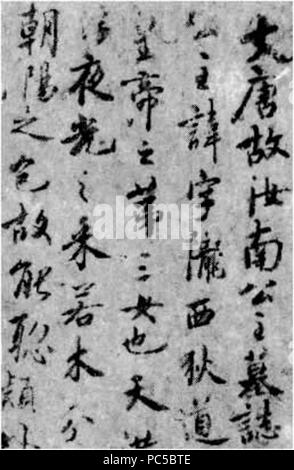 大唐故汝南公主墓誌
公主諱字隴西狄道
皇帝之第三女也天
浮夜光之采若木分
朝陽之色故能聡穎外
PC5BTE